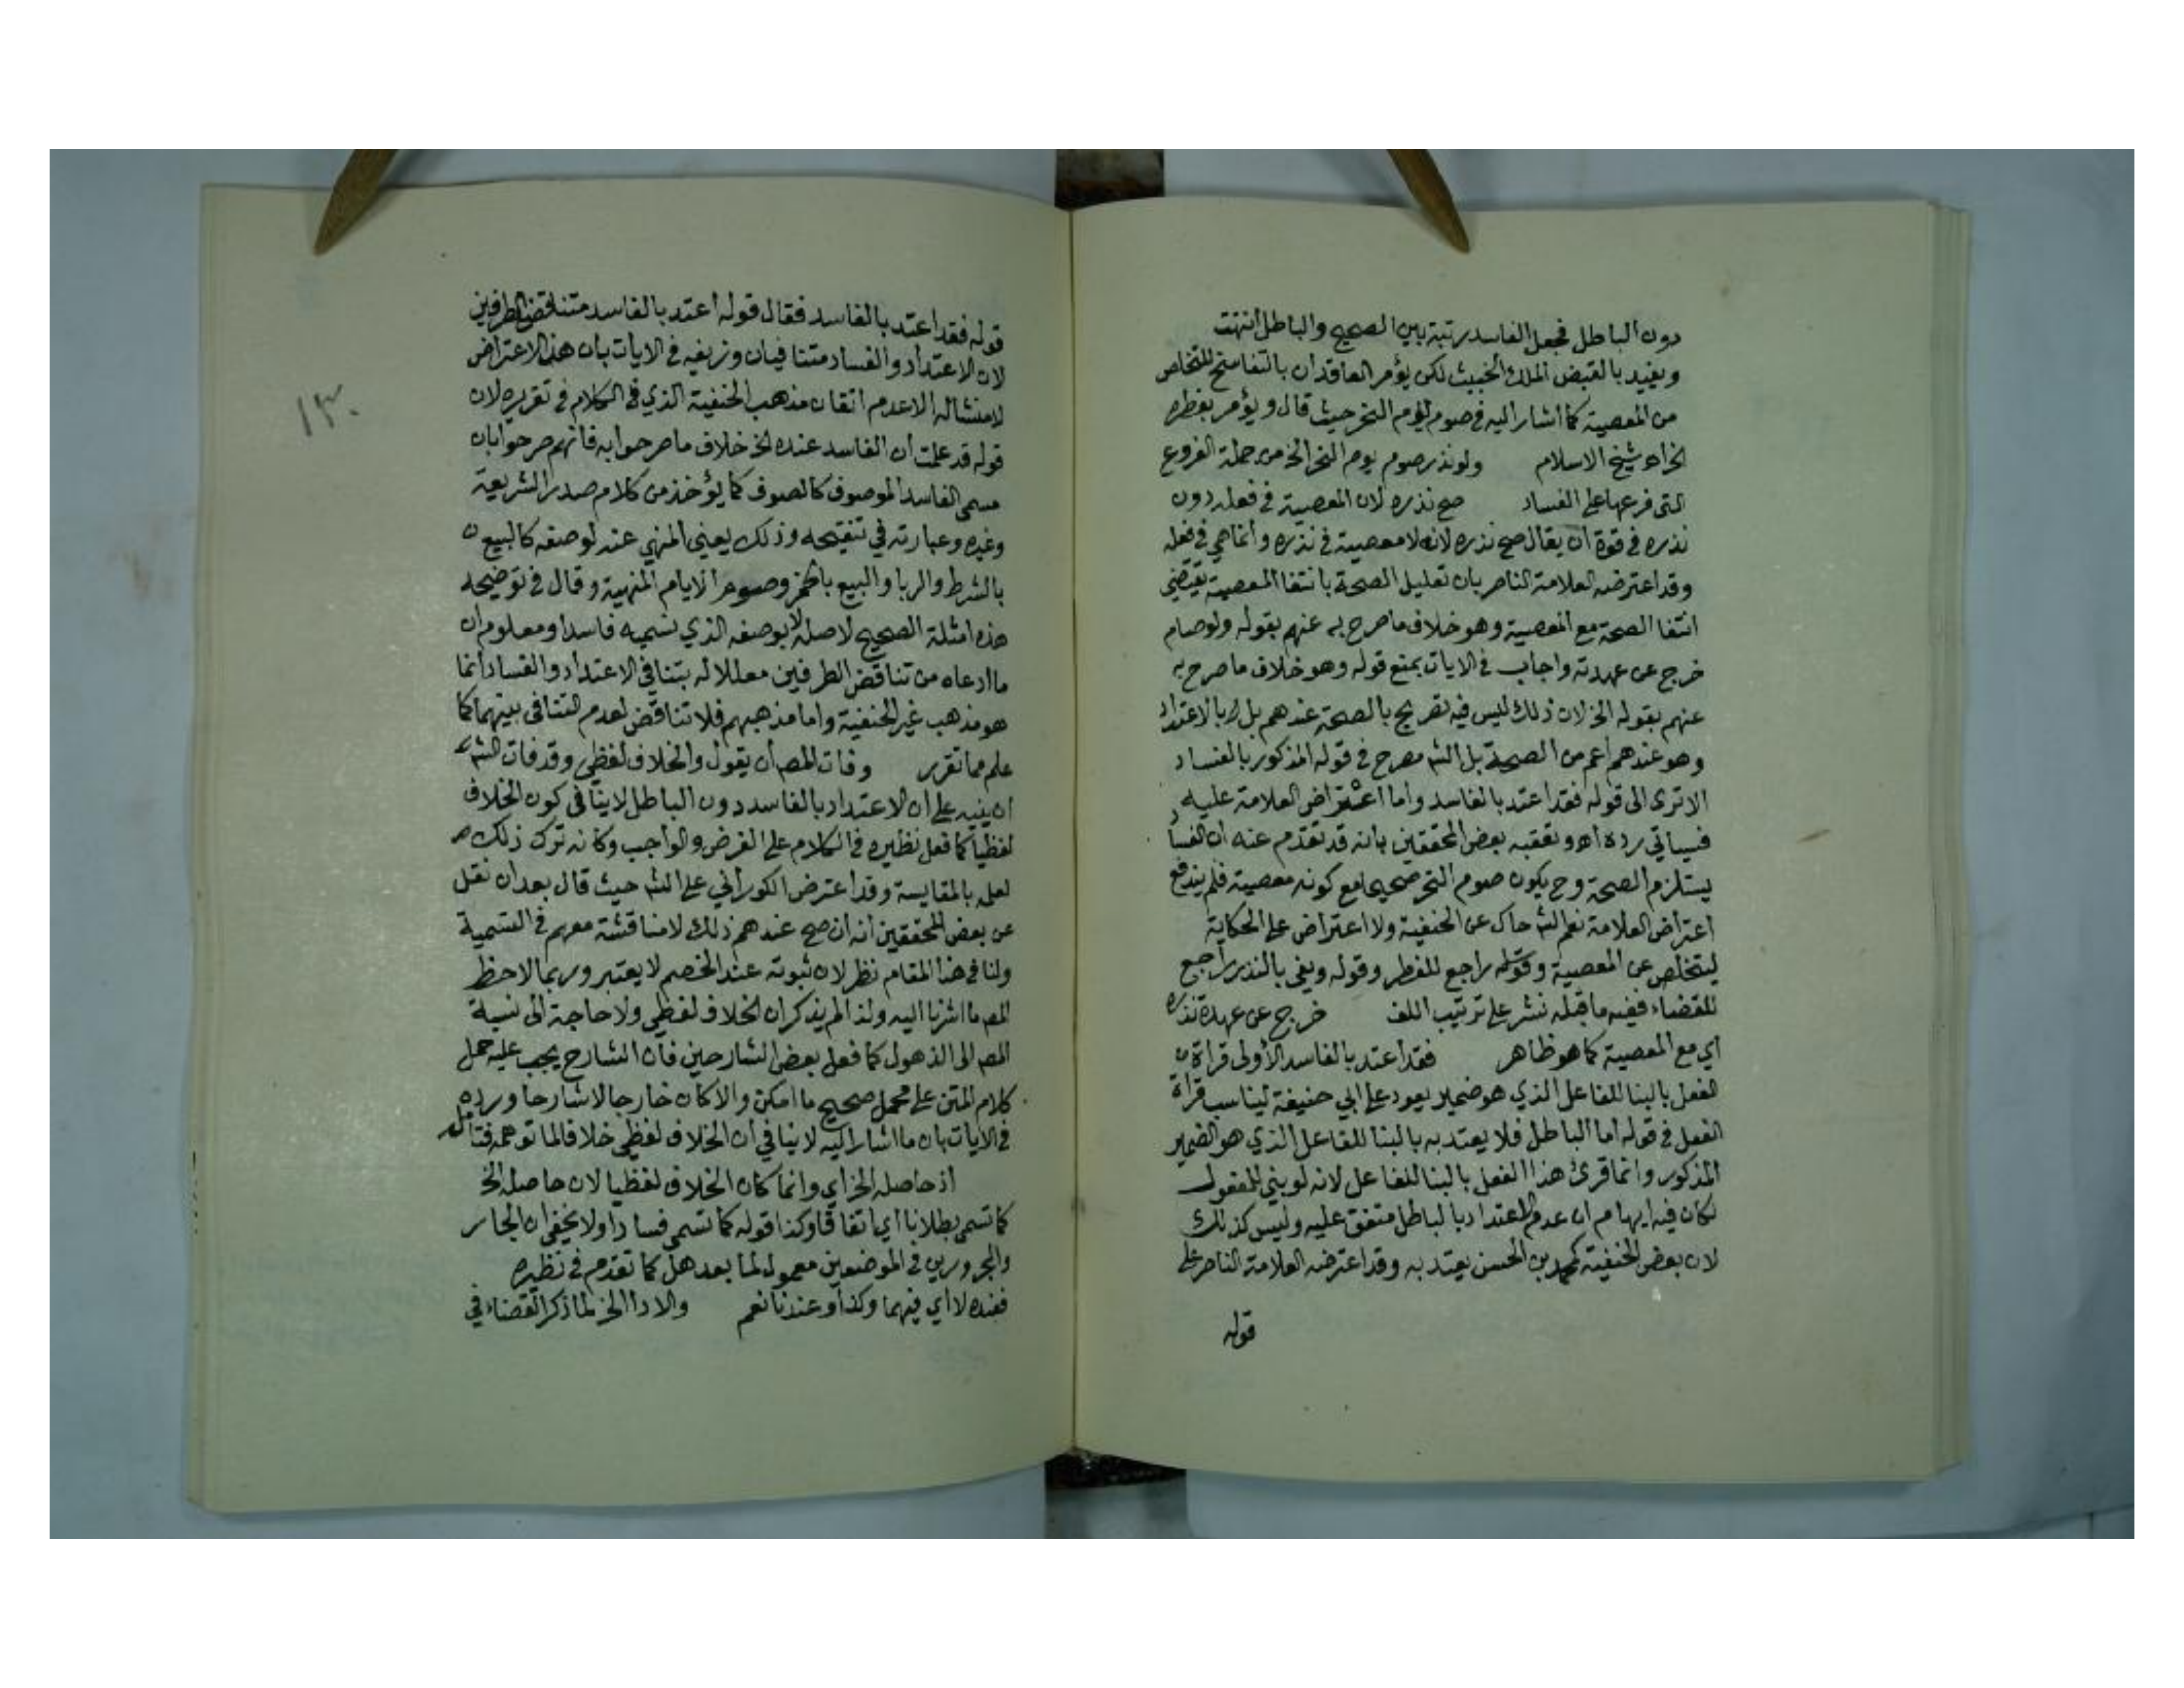 دون الباطل فجعل الفاسد رتبة بين الصحيح والباطل انتهت
ويفيد بالقبض الملك الخبيث لكن يؤمر العاقدان بالتفاسخ للتخلص
من المعصية كما أشار اليه في صوم يوم النحر حيث قال ويؤمر بفطره
الخ اه شيخ الاسلام ولو نذر صوم يوم النحر الخ من جملة الفروع
التى فرعها على الفساد صح نذره لان المعصية في فعله دون
نذره في قوة ان يقال صح نذره لانه لا معصية في نذره وانما هي في فعله
وقد اعترضه العلامة الناصر بان تعليل الصحة بانتفا المعصية يقتضي
انتفا الصحة مع المعصية وهو خلاف ما صرح به عنهم بقوله ولو صام
خرج عن عهدته واجاب في الايات بمنع قوله وهو خلاف ما صرح به
عنهم بقوله الخ لان ذلك ليس فيه تصريح بالصحة عندهم بل بالاعتداد
وهو عندهم اعم من الصحة بل الشم مصرح في قوله المذكور بالفساد
الا ترى الى قوله فقد اعتد بالفاسد واما اعتراض العلامة عليه
فسياتي رده اه وتعقبه بعض المحققين بانه قد تقدم عنه ان الفساد
يستلزم الصحة وح يكون صوم النحر صحيحا مع كونه معصية فلم يندفع
اعتراض العلامة نعم الشم حاك عن الحنفية ولا اعتراض على الحكاية
ليتخلص عن المعصية وقوله راجع للفطر وقوله ويفي بالنذر راجع
للقضاء ففيه ما قبله نشر على ترتيب اللف خرج عن عهدة نذره
اي مع المعصية كما هو ظاهر فقد اعتد بالفاسد الأولى قراة
الفعل بالبنا للفاعل الذي هو ضمير يعود على ابي حنيفة ليناسب قراة
الفعل في قوله اما الباطل فلا يعتد به بالبنا للفاعل الذي هو الضمير
المذكور وانما قرئ هذا الفعل بالبنا للفاعل لانه لو بني للمفعول
لكان فيه ايهام ان عدم الاعتداد بالباطل متفق عليه وليس كذلك
لان بعض الحنفية كمحمد بن الحسن يعتد به وقد اعترضه العلامة الناصر على
قوله
١٣٠
قوله فقد اعتد بالفاسد فقال قوله اعتد بالفاسد متناقض الطرفين
لان الاعتداد والفساد متنافيان وزيفه في الايات بان هذا الاعتراض
لا منشا له الا عدم اتقان مذهب الحنفية الذي في الكلام في تقريره لان
قوله قد علمت ان الفاسد عنده الخ خلاف ما صرحوا به فانهم صرحوا بان
مسمى الفاسد الموصوف كما يؤخذ من كلام صدر الشريعة
وغيره وعبارته في تنقيحه وذلك يعني المنهي عنه لوصفه كالبيع
بالشرط والربا والبيع بالخمر وصوم الايام المنهية وقال في توضيحه
هذه امثلة الصحيح لاصله لا بوصفه الذي نسميه فاسدا ومعلوم ان
ما ادعاه من تناقض الطرفين معللا له بتنافي الاعتداد والفساد انما
هو مذهب غير الحنفية واما مذهبهم فلا تناقض لعدم التنافي بينهما كما
علم مما تقرر وفات المصم أن يقول والخلاف لفظي وقد فات الشم
ان ينبه على ان الاعتداد بالفاسد دون الباطل لا ينافي كون الخلاف
لفظيا كما فعل نظيره في الكلام على الفرض والواجب وكانه ترك ذلك
لعلمه بالمقايسة وقد اعترض الكوراني على الشم حيث قال بعد ان نقل
عن بعض المحققين انه ان صح عندهم ذلك لا مناقشة معهم في التسمية
ولنا في هذا المقام نظر لان ثبوته عند الخصم لا يعتبر وربما لاحظ
المصم ما اشرنا اليه ولذا لم يذكر ان الخلاف لفظي ولا حاجة الى نسبة
المصم الى الذهول كما فعل بعض الشارحين فان الشارح يجب عليه حمل
كلام المتن على محمل صحيح ما امكن والا كان خارجا لا شارحا ورده
في الايات بان ما اشار اليه لا ينافي ان الخلاف لفظي خلافا لما توهمه فتامل
اذ حاصله الخ اي وانما كان الخلاف لفظيا لان حاصله الخ
كما تسمى بطلانا اي اتفاقا وكذا قوله كما تسمى فسادا ولا يخفى ان الجار
والمجرورين في الموضعين معمول لما بعد هل كما تقدم في نظيره
فعنده لا اي فيهما وكذا وعندنا نعم والادا الخ لما ذكر القضاء في